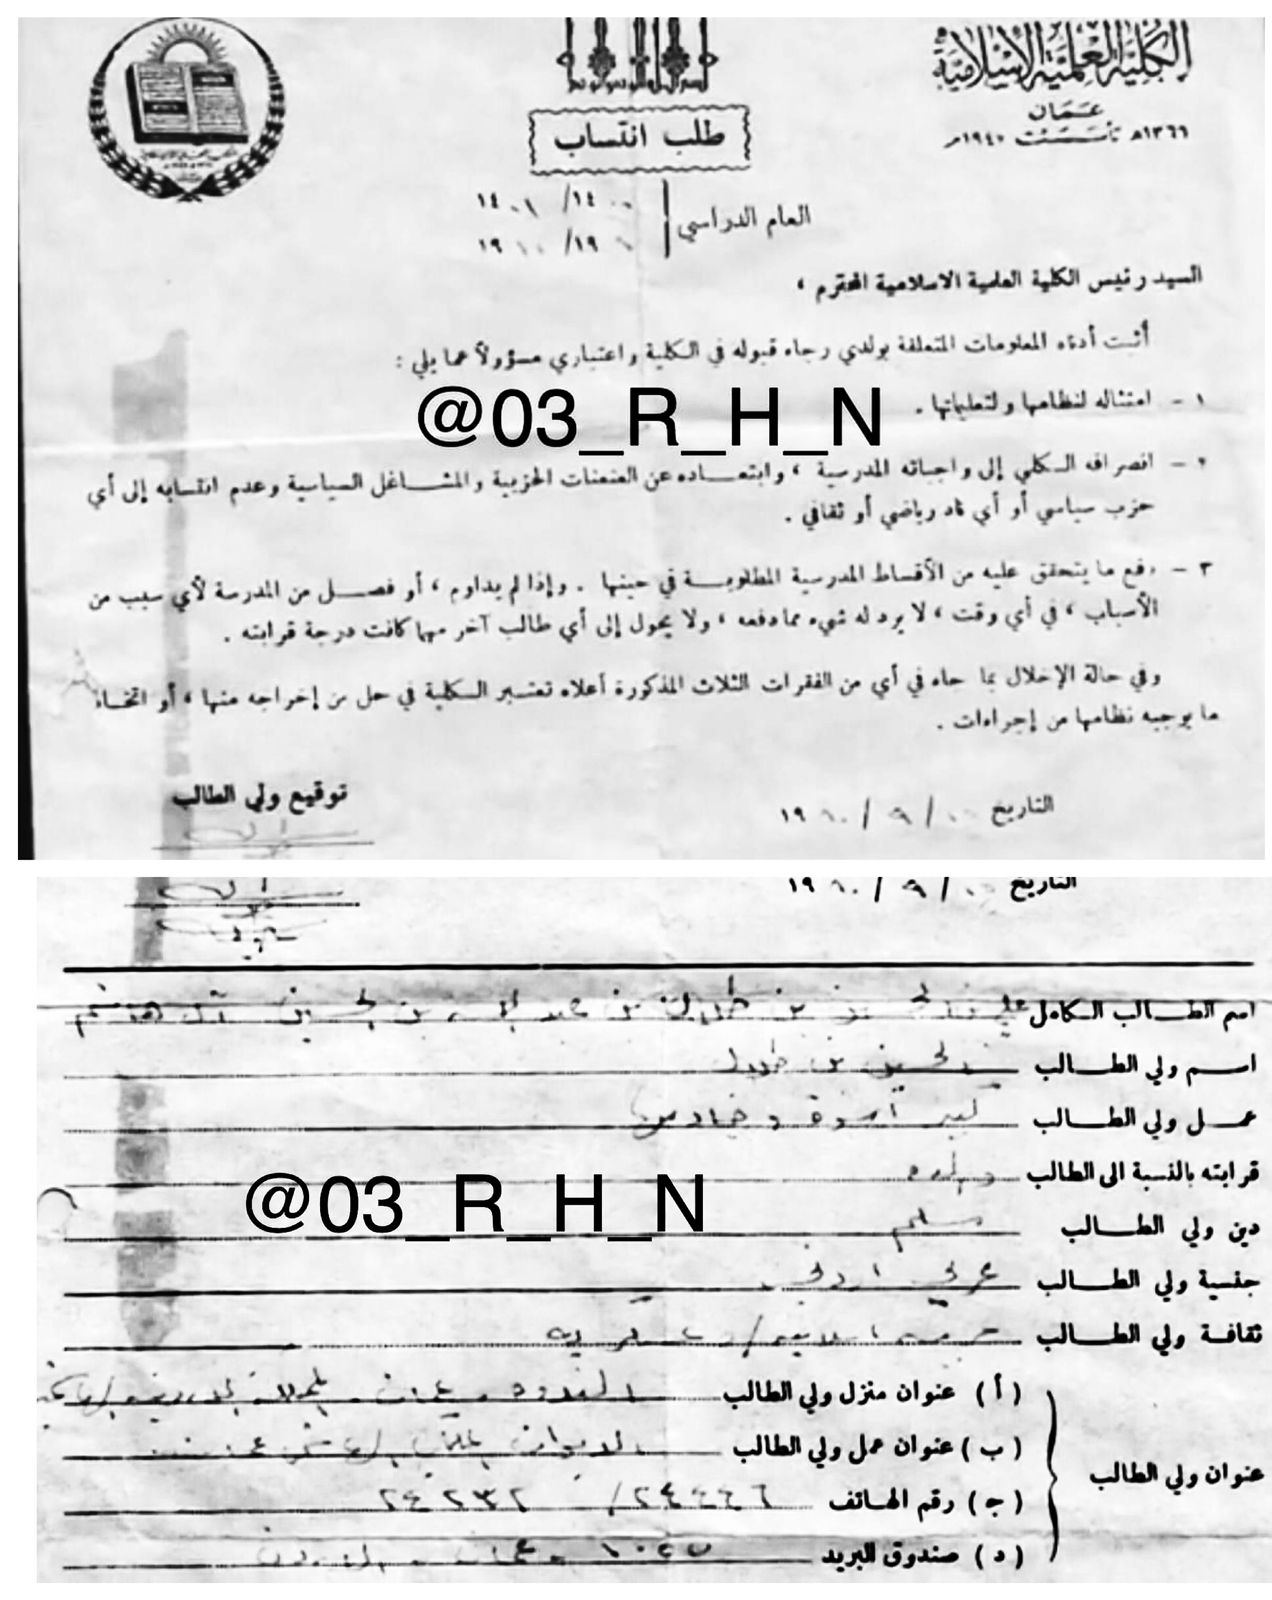 الكلية العلمية الاسلامية
عمان
١٣٦٦هـ تأسست ١٩٤٧م
طلب انتساب
العام الدراسي
١٤٠٠/ ١٤٠١
السيد رئيس الكلية العلمية الاسلامية المحترم ،
أثبت أدناه المعلومات المتعلقة بولدي رجاء قبوله في الكلية واعتباري مسؤولاً عما يلي :
١ - امتثاله لنظامها ولتعليماتها .
@03_R_H_N
٢ - انصرافه الكلي إلى واجباته المدرسية ، وابتعاده عن العنعنات الحزبية والمشاغل السياسية وعدم انتسابه إلى أي
حزب سياسي أو أي ناد رياضي أو ثقافي .
٣ - دفع ما يتحقق عليه من الأقساط المدرسية المطلوبة في حينها . وإذا لم يداوم ، أو فصل من المدرسة لأي سبب من
الأسباب ، في أي وقت ، لا يرد له شيء مما دفعه ، ولا يحول إلى أي طالب آخر مهما كانت درجة قرابته .
وفي حالة الإخلال بما جاء في أي من الفقرات الثلاث المذكورة أعلاه تعتبر الكلية في حل من إخراجه منها ، أو اتخاذ
ما يوجبه نظامها من إجراءات .
التاريخ
توقيع ولي الطالب
التاريخ
اسم الطالب الكامل علي بن الحسين بن طلال بن عبد الله بن الحسين آل هاشم
اسم ولي الطالب الحسين بن طلال
عمل ولي الطالب كبير أسرة وخادمها
قرابته بالنسبة الى الطالب والده
@03_R_H_N
دين ولي الطالب مسلم
جنسية ولي الطالب عربي اردني
ثقافة ولي الطالب
عنوان ولي الطالب
(أ) عنوان منزل ولي الطالب
(ب) عنوان عمل ولي الطالب الديوان الملكي
(ج) رقم الهاتف ٢٤٤٤٦ / ٢٤٢٣٢
(د) صندوق البريد